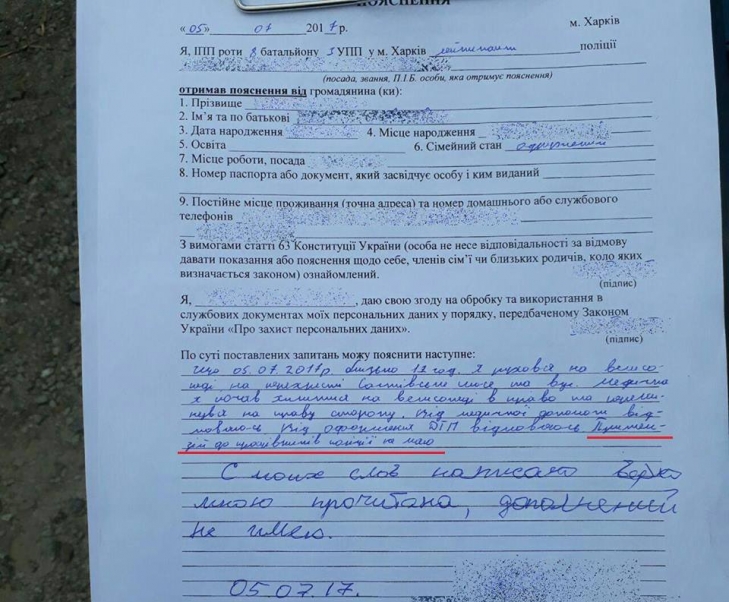 ПОЯСНЕННЯ
«05» 07 2017 р. м. Харків
Я, ІПП роти 8 батальйону 3 УПП у м. Харків лейтенант поліції
(посада, звання, П.І.Б. особи, яка отримує пояснення)
отримав пояснення від громадянина (ки):
1. Прізвище
2. Ім'я та по батькові
3. Дата народження 4. Місце народження
5. Освіта 6. Сімейний стан одружений
7. Місце роботи, посада
8. Номер паспорта або документ, який засвідчує особу і ким виданий
9. Постійне місце проживання (точна адреса) та номер домашнього або службового
телефонів
З вимогами статті 63 Конституції України (особа не несе відповідальності за відмову
давати показання або пояснення щодо себе, членів сім'ї чи близьких родичів, коло яких
визначається законом) ознайомлений.
(підпис)
Я, , даю свою згоду на обробку та використання в
службових документах моїх персональних даних у порядку, передбаченому Законом
України «Про захист персональних даних».
(підпис)
По суті поставлених запитань можу пояснити наступне:
що 05.07.2017р. близько 12 год. я рухався на велоси-
педі на перехресті Салтівське шосе та вул.
я почав хилитися на велосипеді в право та
на праву сторону. Від медичної допомоги від-
мовляюсь від оформлення ДТП відмовляюсь Претен-
зій до працівників поліції не маю
С моих слов написано верно
мною прочитана, дополнений
не имею.
05.07.17.